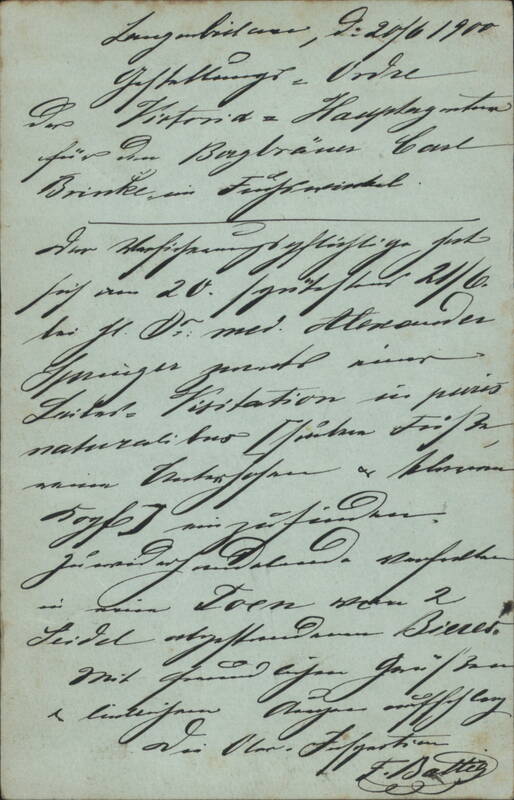 Langenbielau, d: 20/6 1900
Gestellungs = Ordre
der Victoria = Hauptagentur
für den Bergbräuer Carl
Brinke, in Fuchswinkel.
Der Versicherungspflichtige hat
sich am 20. spätestens 21/6.
bei H. Dr. med. Alexander
Springer zwecks einer
Leibes = Visitation in puris
naturalibus [saubere Füße,
reine Unterhosen & klaren
Kopf] einzufinden.
Zuwiderhandelnde verfallen
in eine Poen von 2
Seidel abgestandenen Bieres.
Mit freundlichen Grüßen
& Augenaufschlag
Die Ober-Inspection
F. Battig